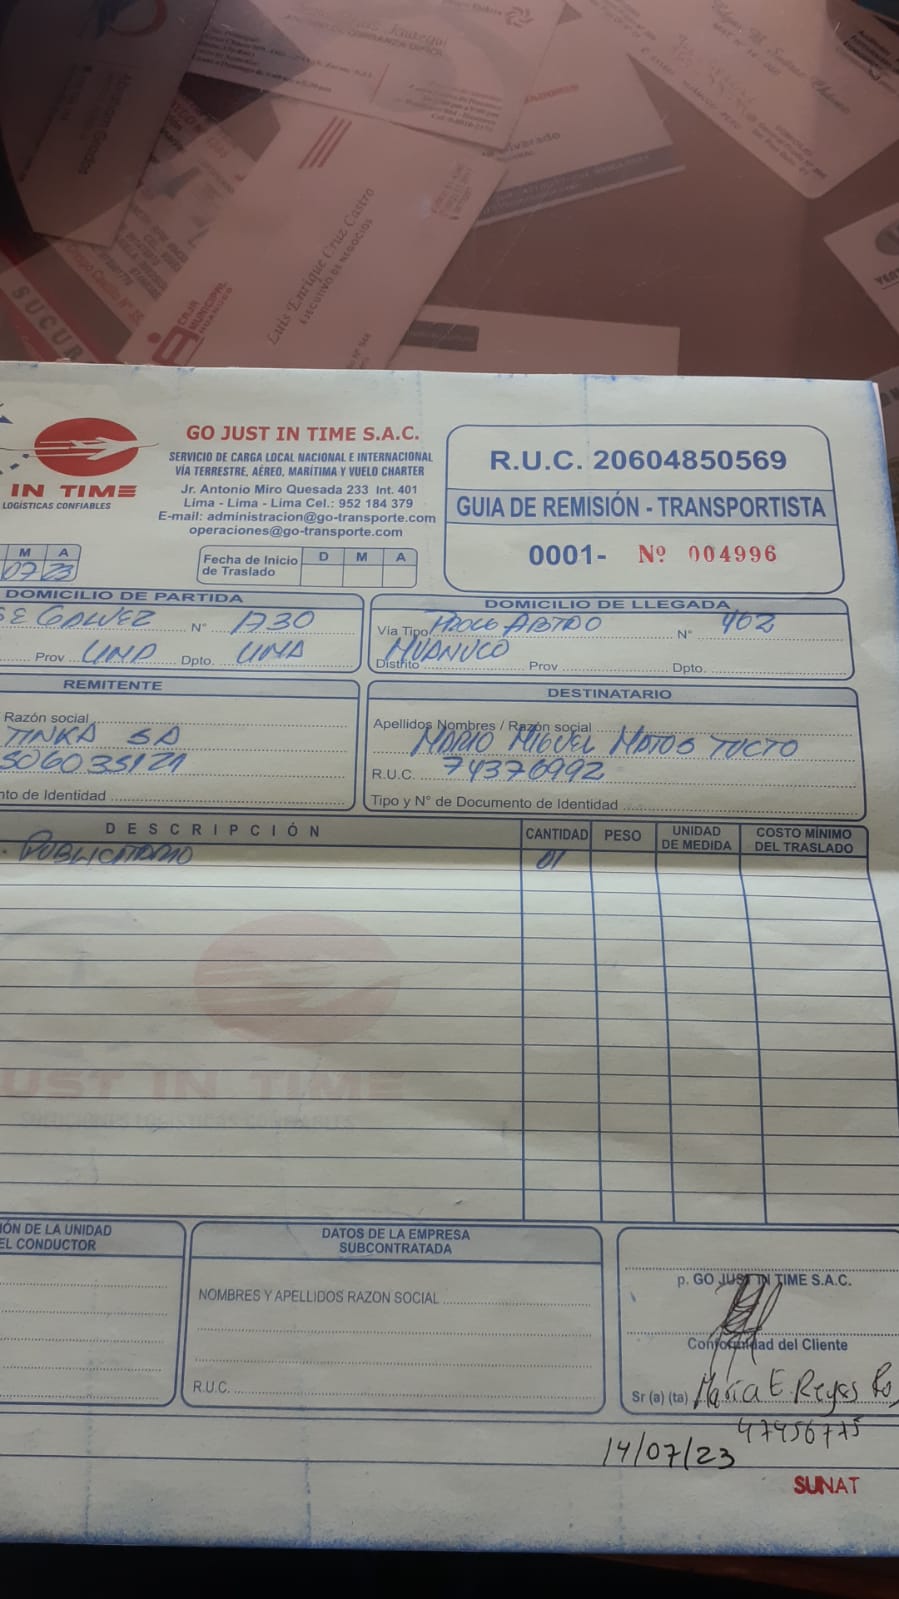 Luis Enrique Cruz Castro
EJECUTIVO DE NEGOCIOS
CAJA
MUNICIPAL
HUANUCO
GO JUST IN TIME S.A.C.
SERVICIO DE CARGA LOCAL NACIONAL E INTERNACIONAL
VÍA TERRESTRE, AÉREO, MARÍTIMA Y VUELO CHARTER
IN TIME
LOGÍSTICAS CONFIABLES
Jr. Antonio Miro Quesada 233 Int. 401
Lima - Lima - Lima Cel.: 952 184 379
E-mail: administracion@go-transporte.com
operaciones@go-transporte.com
R.U.C. 20604850569
GUIA DE REMISIÓN - TRANSPORTISTA
0001- Nº 004996
M A
07 23
Fecha de Inicio de Traslado D M A
DOMICILIO DE PARTIDA
E GALVEZ N° 1730
Prov LIMA Dpto. LIMA
DOMICILIO DE LLEGADA
Vía Tipo N° 402
HUANUCO
Distrito Prov Dpto.
REMITENTE
Razón social
TINKA SA
506035121
nto de Identidad
DESTINATARIO
Apellidos Nombres / Razón social
MARIO MIGUEL MATOS TUCTO
R.U.C. 74376992
Tipo y N° de Documento de Identidad
DESCRIPCIÓN CANTIDAD PESO UNIDAD DE MEDIDA COSTO MÍNIMO DEL TRASLADO
. PUBLICITARIO 01
UST IN TIME
IÓN DE LA UNIDAD
EL CONDUCTOR
DATOS DE LA EMPRESA
SUBCONTRATADA
NOMBRES Y APELLIDOS RAZON SOCIAL
R.U.C.
p. GO JUST IN TIME S.A.C.
Conformidad del Cliente
Sr (a) (ta) María E. Reyes
47456775
14/07/23
SUNAT